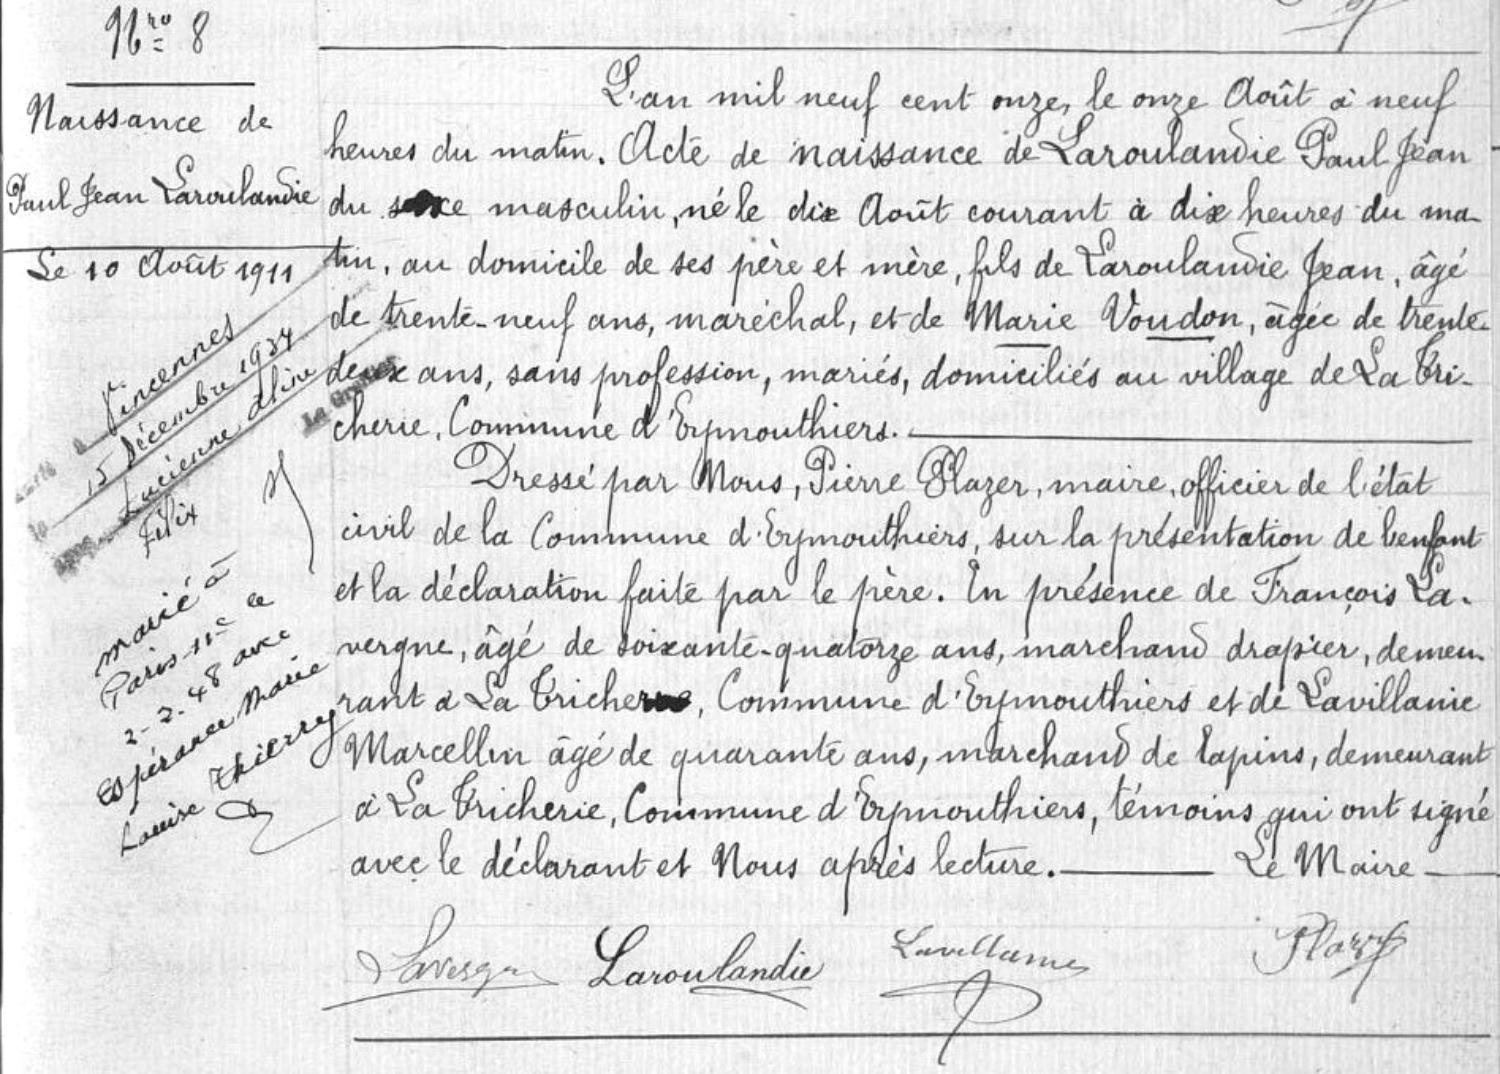 Nro 8
Naissance de
Paul Jean Laroulandie
Le 10 Août 1911
Vincennes
15 Décembre 1934
Lucienne Aline
Félix
marié à
Paris 11e le
2-2-48 avec
Espérance Marie
Louise Thierry
L'an mil neuf cent onze, le onze Août à neuf
heures du matin. Acte de naissance de Laroulandie Paul Jean
du sexe masculin, né le dix Août courant à dix heures du ma-
tin, au domicile de ses père et mère, fils de Laroulandie Jean, âgé
de trente-neuf ans, maréchal, et de Marie Voudon, âgée de trente-
deux ans, sans profession, mariés, domiciliés au village de La Tri-
cherie, Commune d'Eymouthiers.
Dressé par Nous, Pierre Plazer, maire, officier de l'état
civil de la Commune d'Eymouthiers, sur la présentation de l'enfant
et la déclaration faite par le père. En présence de François La-
vergne, âgé de soixante-quatorze ans, marchand drapier, demeu-
rant à La Tricherie, Commune d'Eymouthiers et de Lavillanie
Marcellin âgé de quarante ans, marchand de lapins, demeurant
à La Tricherie, Commune d'Eymouthiers, témoins qui ont signé
avec le déclarant et Nous après lecture. Le Maire
Lavergne Laroulandie Lavillanie